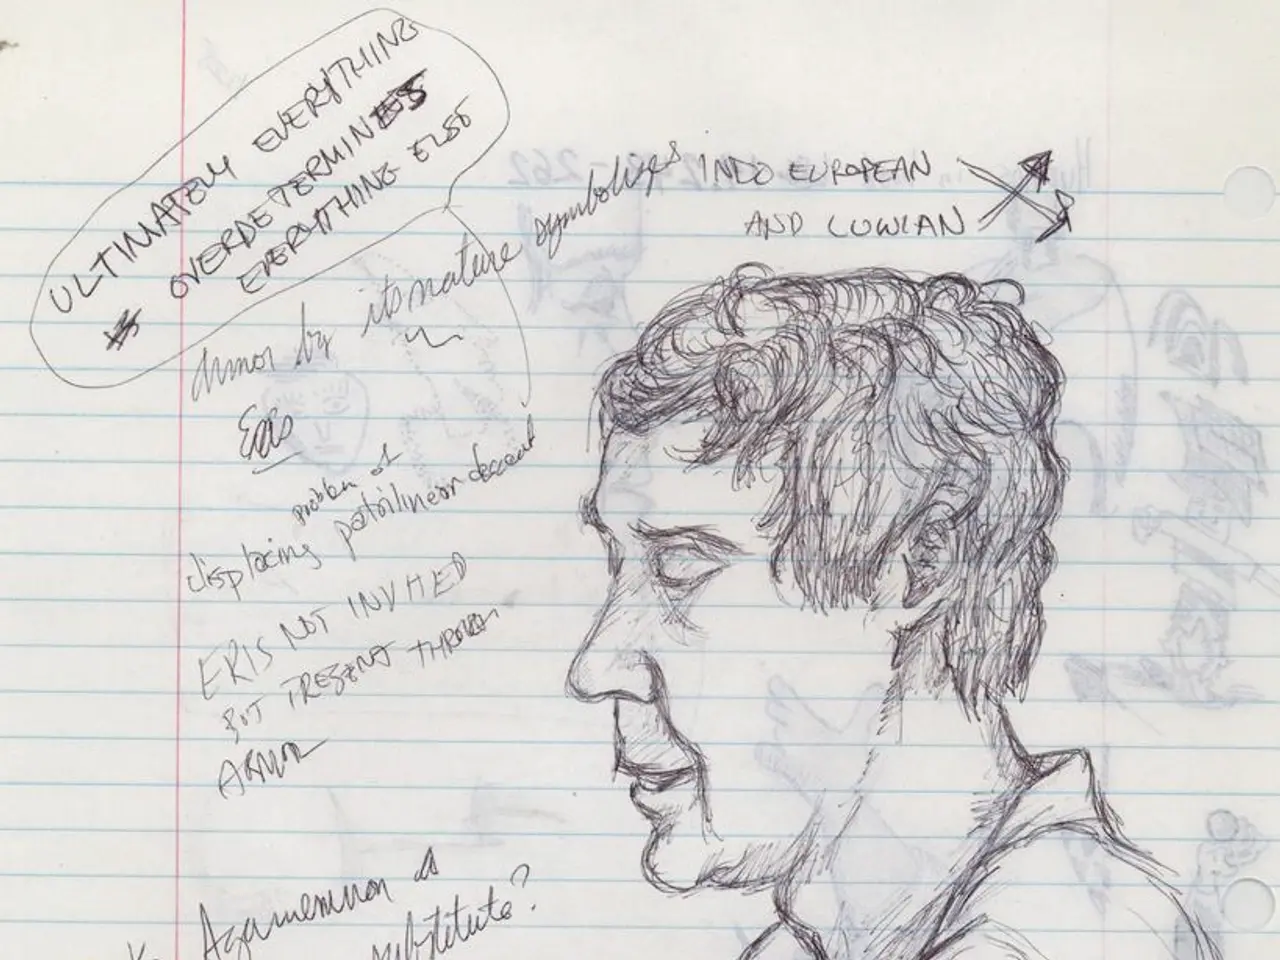 ULTIMATELY EVERYTHING
OVERDETERMINES
EVERYTHING ELSE
INDO EUROPEAN
AND LUWIAN
Armor by its nature symbolizes
Eris
problem of
displacing patrilinear descent
ERIS NOT INVITED
BUT PRESENT THROUGH
ARMOR
Agamemnon as
substitute?